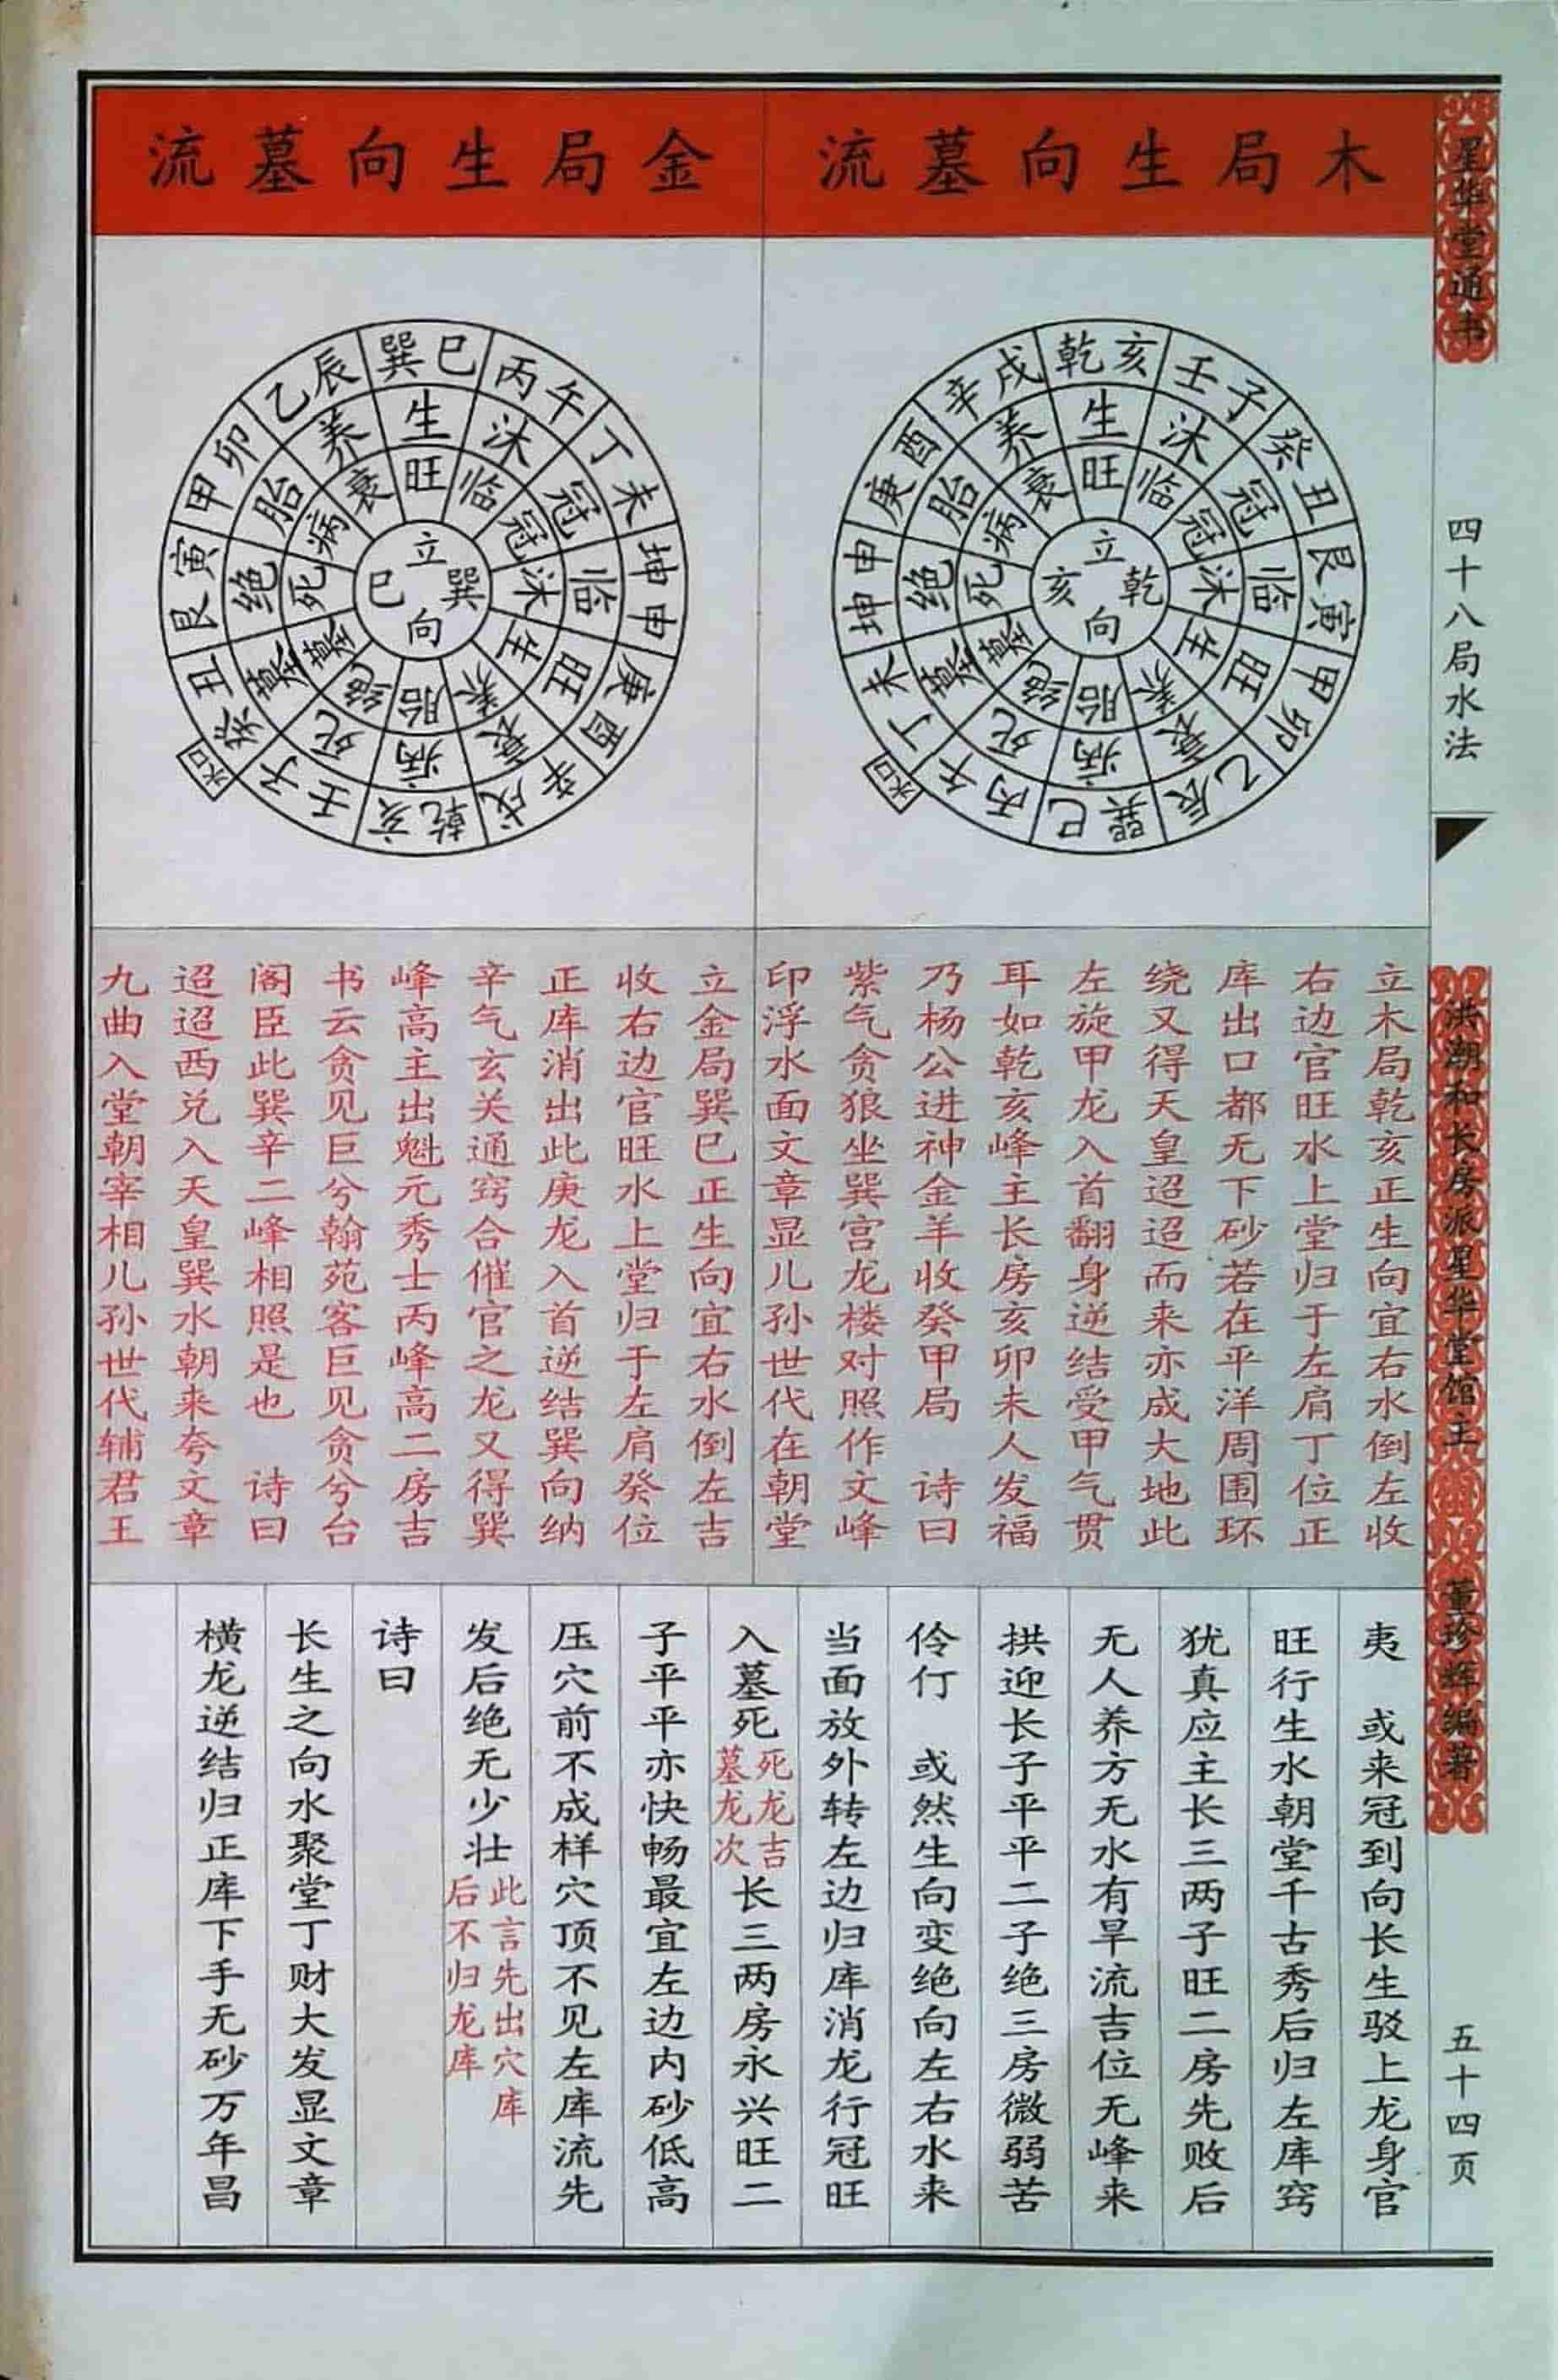 星华堂通书
四十八局水法
洪潮和长房派星华堂馆主
董珍辉编著
五十四页
木局生向墓流
乾亥
壬子
癸丑
艮寅
甲卯
乙辰
巽巳
丙午
丁未
坤申
庚酉
辛戌
生
沐
冠
临
旺
衰
病
死
墓
绝
胎
养
旺
临
冠
沐
生
养
胎
绝
墓
死
病
衰
立
乾
亥
向
水口
立木局乾亥正生向宜右水倒左收
右边官旺水上堂归于左肩丁位正
库出口都无下砂若在平洋周围环
绕又得天皇迢迢而来亦成大地此
左旋甲龙入首翻身逆结受甲气贯
耳如乾亥峰主长房亥卯未人发福
乃杨公进神金羊收癸甲局 诗曰
紫气贪狼坐巽宫龙楼对照作文峰
印浮水面文章显儿孙世代在朝堂
金局生向墓流
巽巳
丙午
丁未
坤申
庚酉
辛戌
乾亥
壬子
癸丑
艮寅
甲卯
乙辰
生
沐
冠
临
旺
衰
病
死
墓
绝
胎
养
旺
临
冠
沐
生
养
胎
绝
墓
死
病
衰
立
巽
巳
向
水口
立金局巽巳正生向宜右水倒左吉
收右边官旺水上堂归于左肩癸位
正库消出此庚龙入首逆结巽向纳
辛气玄关通窍合催官之龙又得巽
峰高主出魁元秀士丙峰高二房吉
书云贪见巨兮翰苑客巨见贪兮台
阁臣此巽辛二峰相照是也 诗曰
迢迢西兑入天皇巽水朝来夸文章
九曲入堂朝宰相儿孙世代辅君王
夷 或来冠到向长生驳上龙身官
旺行生水朝堂千古秀后归左库窍
犹真应主长三两子旺二房先败后
无人养方无水有旱流吉位无峰来
拱迎长子平平二子绝三房微弱苦
伶仃 或然生向变绝向左右水来
当面放外转左边归库消龙行冠旺
入墓死死龙吉墓龙次长三两房永兴旺二
子平平亦快畅最宜左边内砂低高
压穴前不成样穴顶不见左库流先
发后绝无少壮此言先出穴库后不归龙库
诗曰
长生之向水聚堂丁财大发显文章
横龙逆结归正库下手无砂万年昌